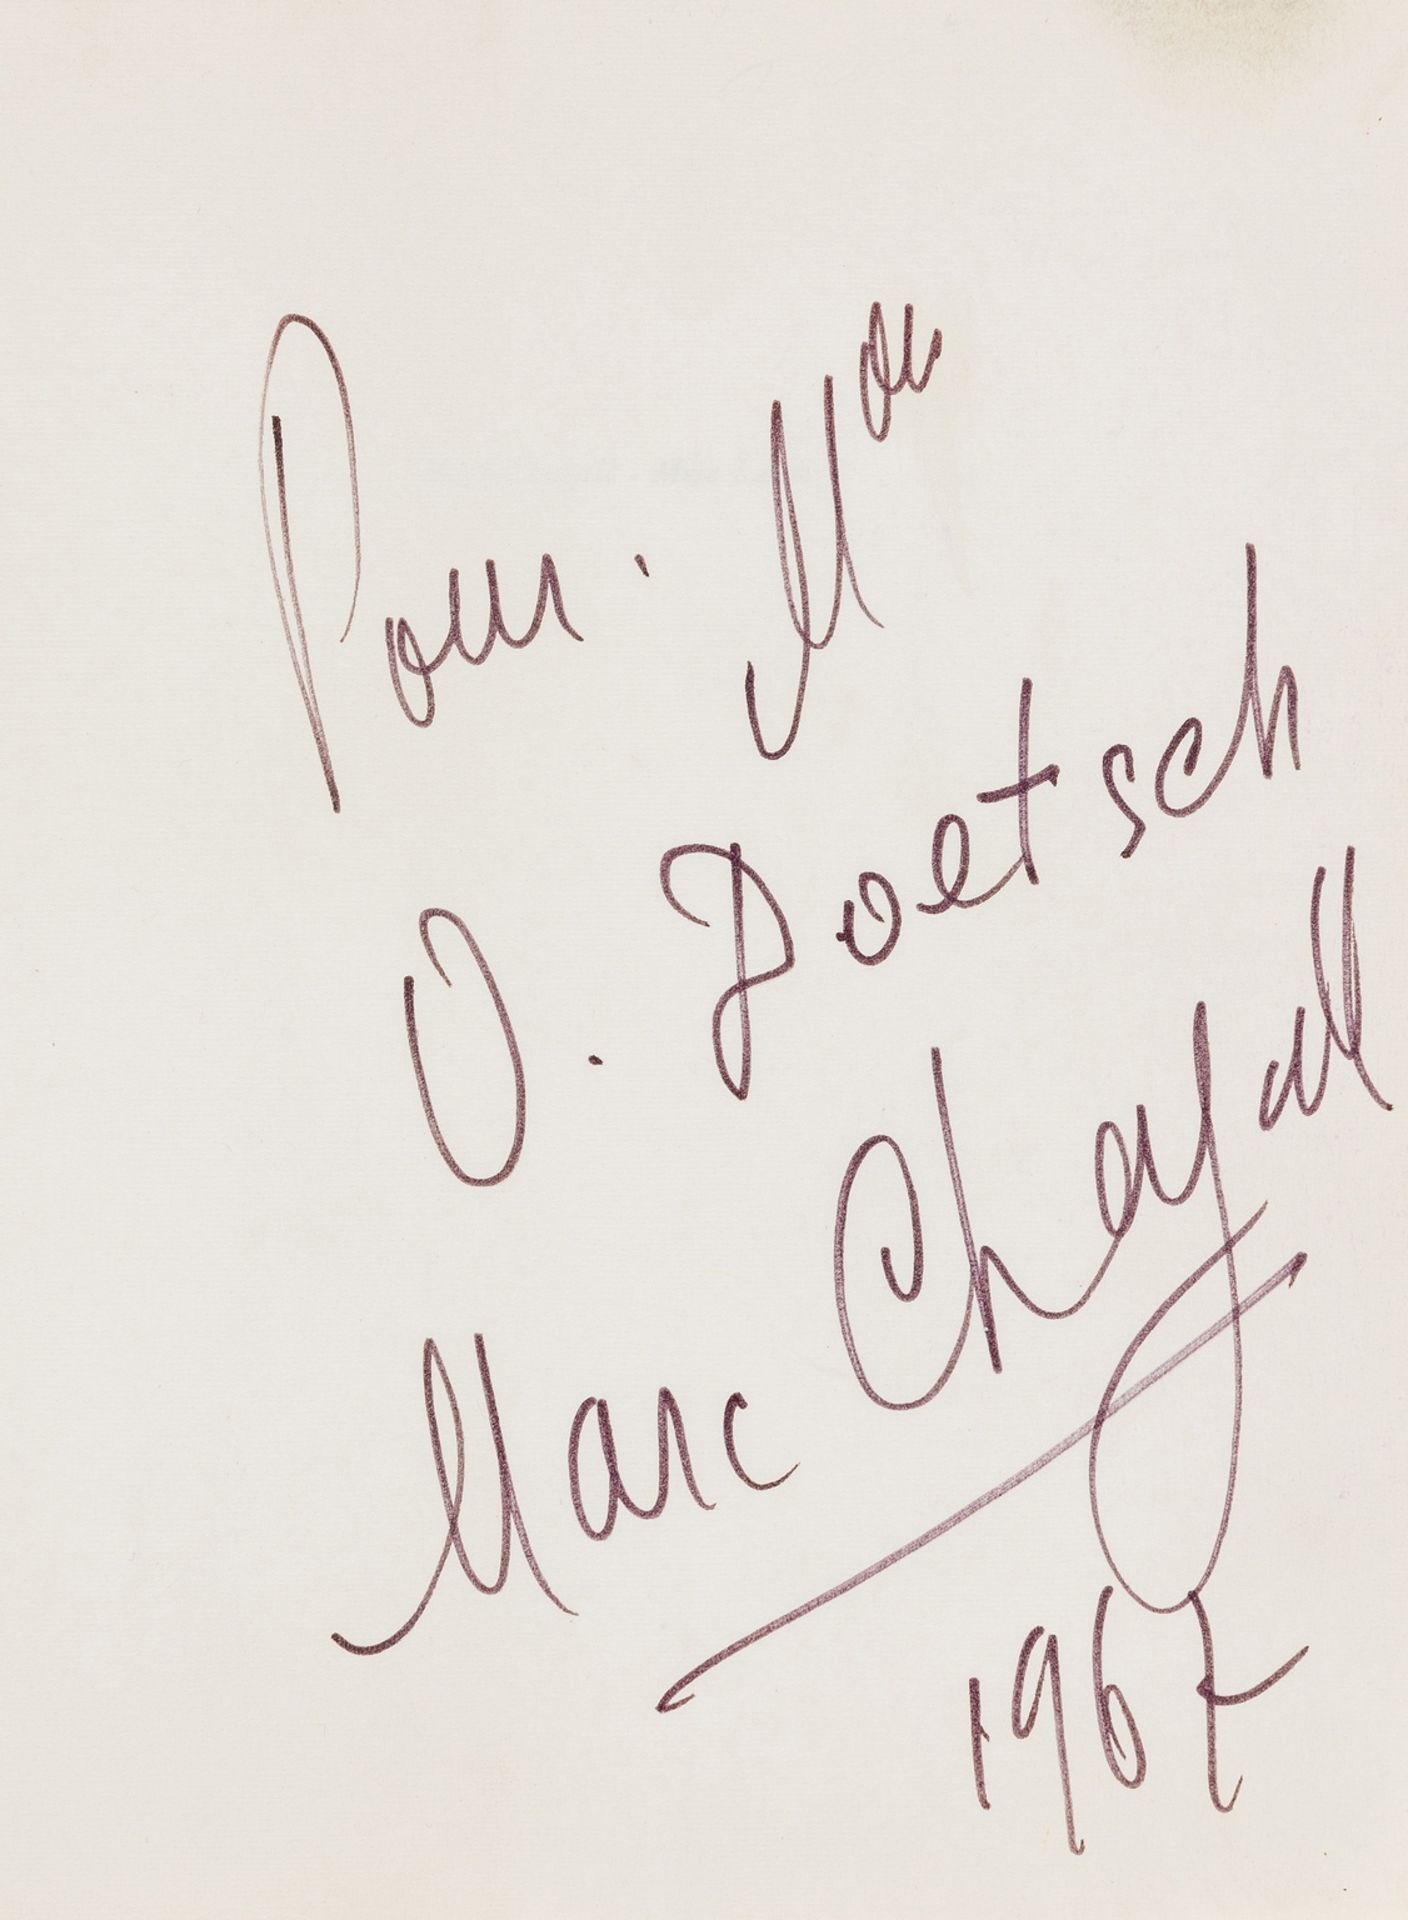 Pour. Mon
O. Doetsch
Marc Chagall
1967